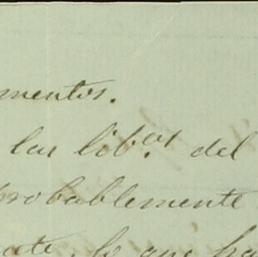 mentos.
las lib.ᵒˢ del
probablemente
lo que ha